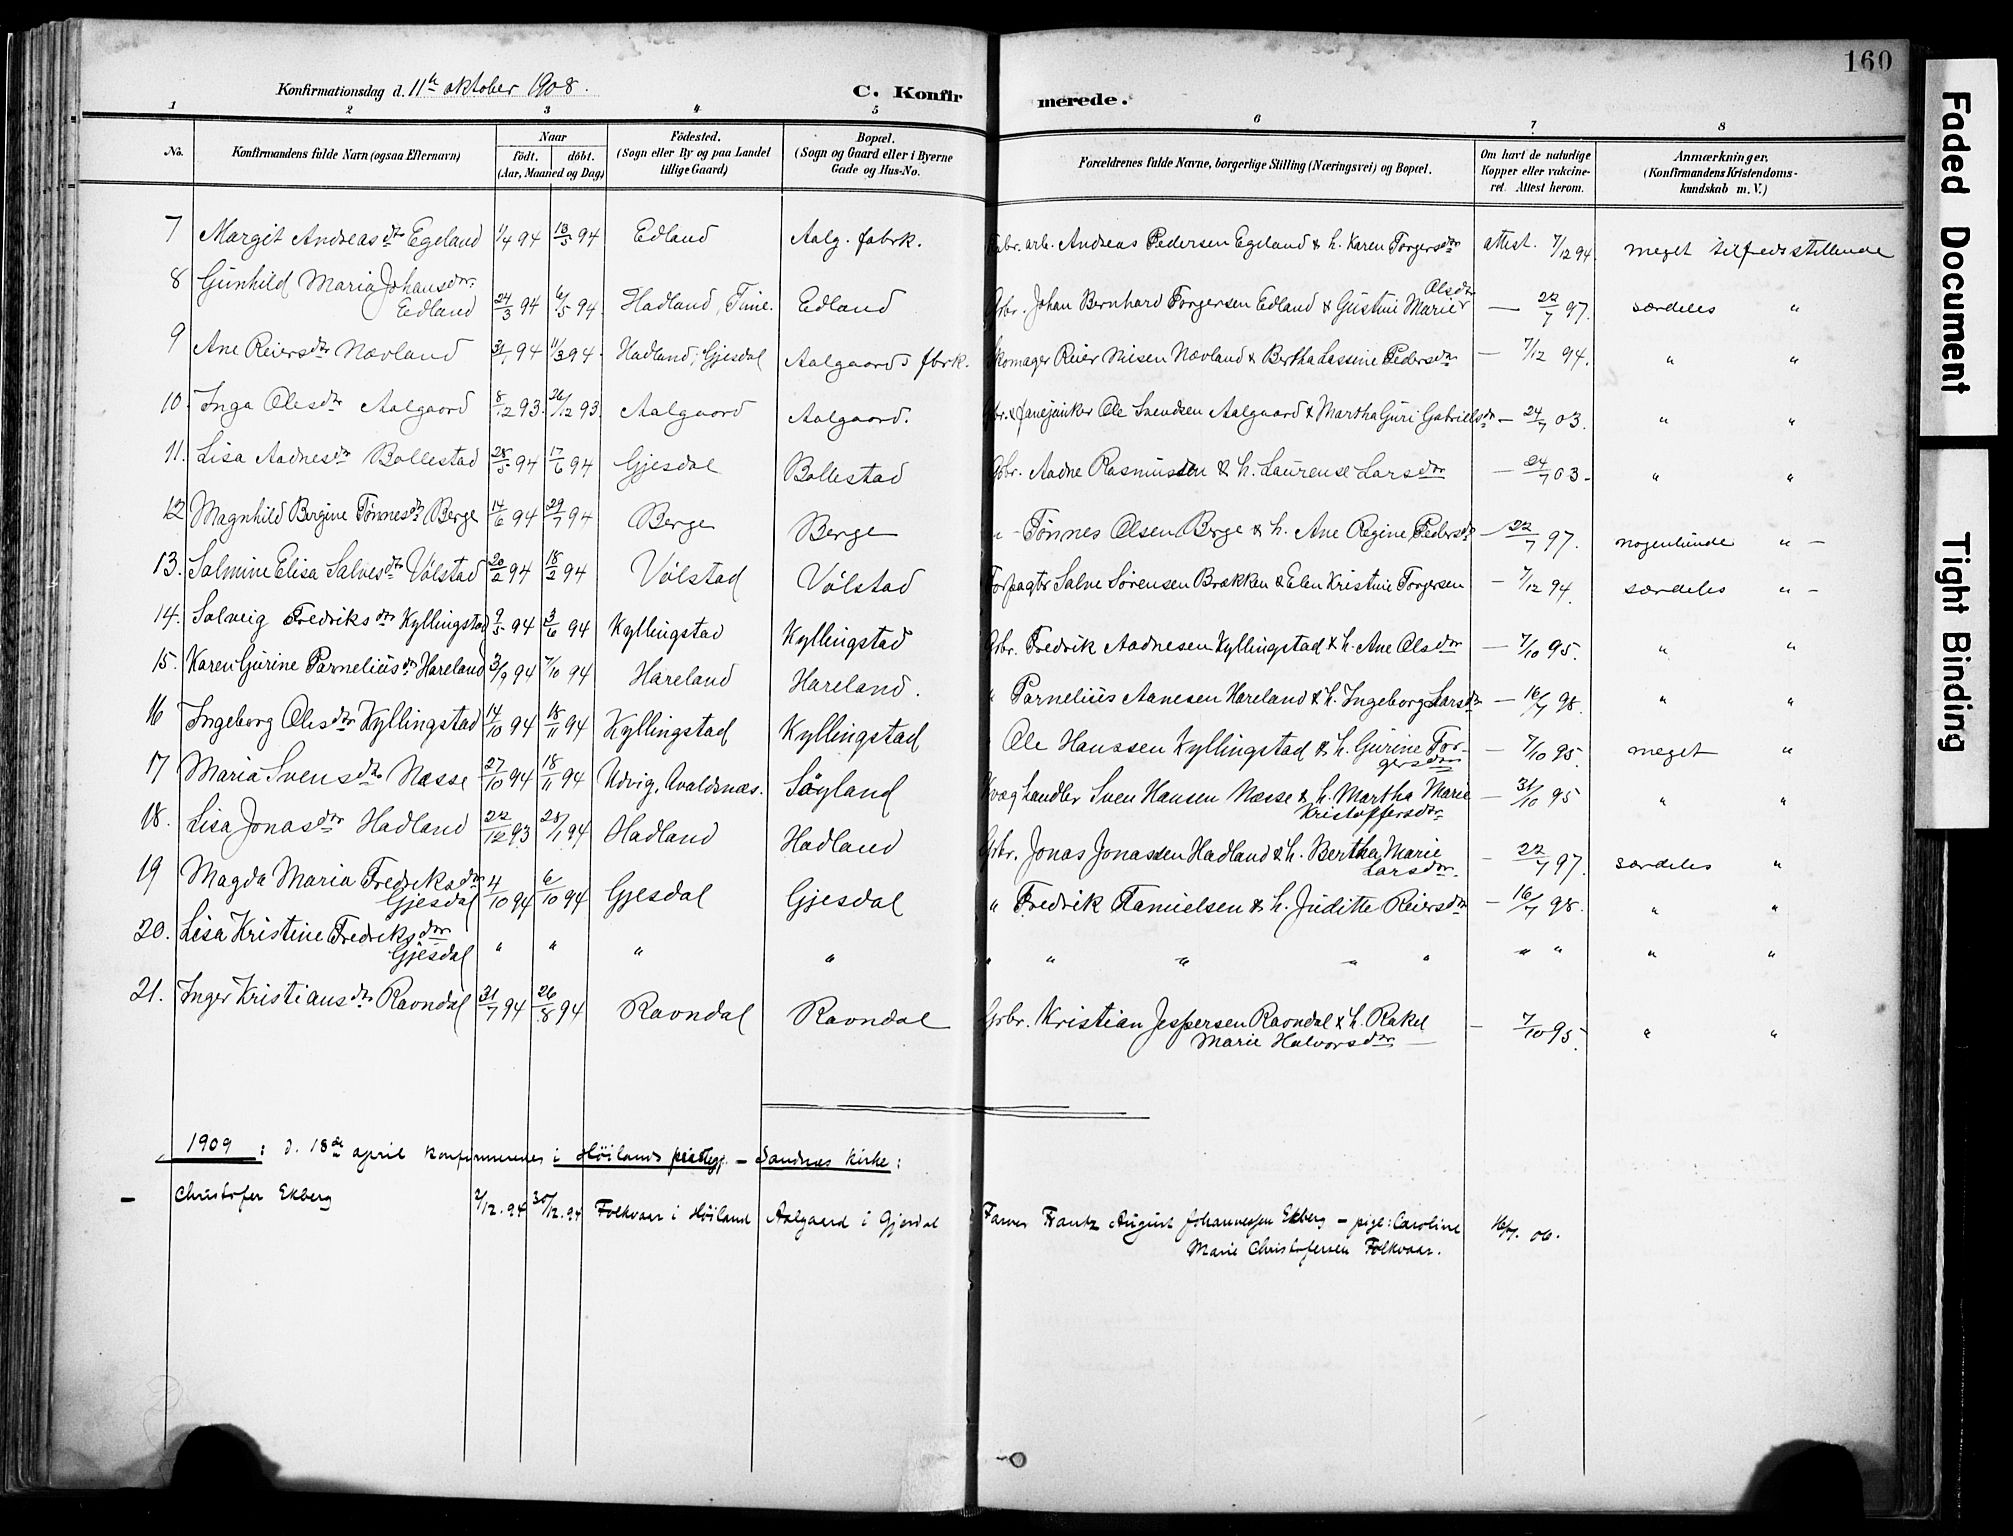 160
Konfirmationsdag d. 11te oktober 1908.
C. Konfirmerede.
1 2 3 4 5 6 7 8
No.
Konfirmandens fulde Navn (ogsaa Efternavn)
Naar
födt. döbt.
(Aar, Maaned og Dag)
Födested.
(Sogn eller By og paa Landet
tillige Gaard)
Bopæl.
(Sogn og Gaard eller i Byerne
Gade og Hus-No.
Forældrenes fulde Navne, borgerlige Stilling (Næringsvei) og Bopæl.
Om havt de naturlige
Kopper eller vakcine-
ret. Attest herom.
Anmærkninger.
(Konfirmandens Kristendoms-
kundskab m. V.)
7 Margit Andreasdtr Egeland 1/4 94 13/5 94 Edland Aalg. fabrk. Fabr. arb. Andreas Pedersen Egeland & h. Karen Torgersdtr attest. 7/12 94 meget tilfredsstillende
8 Gunhild Maria Johansdtr. Edland 24/3 94 6/5 94 Hadland, Time. Edland Gbr. Johan Bernhard Torgersen Edland & Gustine Marie Olsdtr — 22/7 97. særdeles "
9 Ane Reiersdtr Nævland 31/1 94 11/3 94 Hadland, Gjesdal Aalgaards fbrk. Skomager Reier Nilsen Nævland & Bertha Lassine Pedersdtr — 7/12 94. " "
10. Inga Olesdtr Aalgaard 8/12 93. 26/12 93. Aalgaard Aalgaard. Gbr. & fanejunker Ole Svendsen Aalgaard & Martha Guri Gabrielsdtr — 24/7 03. " "
11. Lisa Aadnesdtr Bollestad 28/5 94 17/6 94 Gjesdal Bollestad Gbr. Aadne Rasmussen & h. Laurense Larsdtr — 24/7 03 - " "
12 Magnhild Bergine Tønnesdtr Berge 14/6 94 29/7 94 Berge Berge " - Tønnes Olsen Berge & h. Ane Regine Pedersdtr — 22/7 97. nogenlunde " -
13. Salmine Elisa Salvesdtr Vølstad 20/2 94 18/2 94 Vølstad Vølstad Forpagter Salve Sørensen Brækken & Elen Kristine Torgersen - 7/12 94. særdeles " -
14. Solveig Fredriksdtr Kyllingstad 9/5 94 3/6 94 Kyllingstad Kyllingstad Gbr. Fredrik Aadnesen Kyllingstad & h. Ane Olsdtr — 7/10 95. " "
15. Karen Gurine Parneliusdtr Hareland 3/9 94 7/10 94 Hareland Hareland. " Parnelius Aanesen Hareland & h. Ingeborg Larsdtr — 16/7 98. " "
16 Ingeborg Olesdtr Kyllingstad 14/10 94 18/11 94 Kyllingstad Kyllingstad " Ole Hanssen Kyllingstad & h. Gurine Torgersdtr — 7/10 95. meget "
17 Maria Svensdtr Næsse 27/10 94 18/11 94 Udvig, Avaldsnæs. Søyland Kvæghandler Sven Hansen Næsse & h. Martha Marie Kristoffersdtr — 31/10 95 " "
18. Lisa Jonasdtr Hadland 22/12 93 28/1 94 Hadland Hadland Gbr. Jonas Jonassen Hadland & h. Bertha Marie Larsdtr. - 22/7 97. særdeles "
19 Magda Maria Fredriksdtr Gjesdal 4/10 94 6/10 94 Gjesdal Gjesdal " Fredrik Tamielsen & h. Juditte Reiersdtr — 16/7 98. " "
20. Lisa Kristine Fredriksdtr Gjesdal " " " " " " " " " " " " "
21. Inger Kristiansdtr Ravndal 31/7 94 26/8 94 Ravndal Ravndal Gbr. Kristian Jespersen Ravndal & h. Rakel Marie Halvorsdtr — - 7/10 95. " "
1909 : d. 18de april konfirmeredes i Höilands prestegj. - Sandnes kirke :
- Christofer Ekberg 2/12. 94 30/12. 94 Folkvaar i Höiland Aalgaard i Gjesdal Farver Frantz August Johannessen Ekberg - pige: Caroline
Marie Christofersen Folkvaar. 16/7. 06.
Faded Document
Tight Binding